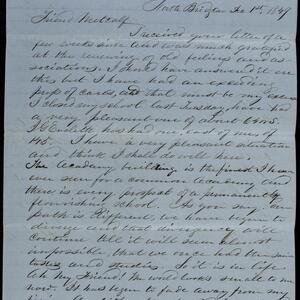 North Bridgton Dec 1st, 1849
Friend Metcalf
I received your letter of a
few weeks since and was much gratified
at the renewing of old feelings and as-
sociations. I should have answered it ere
this but I have had an exceeding
press of cares, and that must be my excuse
I closed my school last Tuesday, have had
a very pleasant one of about 60
has had one, east of me, of
45. I have a very pleasant situation
and think I shall do well here.
The Academy building is the finest I have
ever seen for a common Academy and
there is every prospect of a permanently
flourishing school. As you say our
path is different, we have begun to
diverge and that divergency will
continue till it will seem almost
impossible that we once had the same
tastes and studies. So it is in life
Ah my Friend, the world looks small to me
now. It has begun to fade away from my